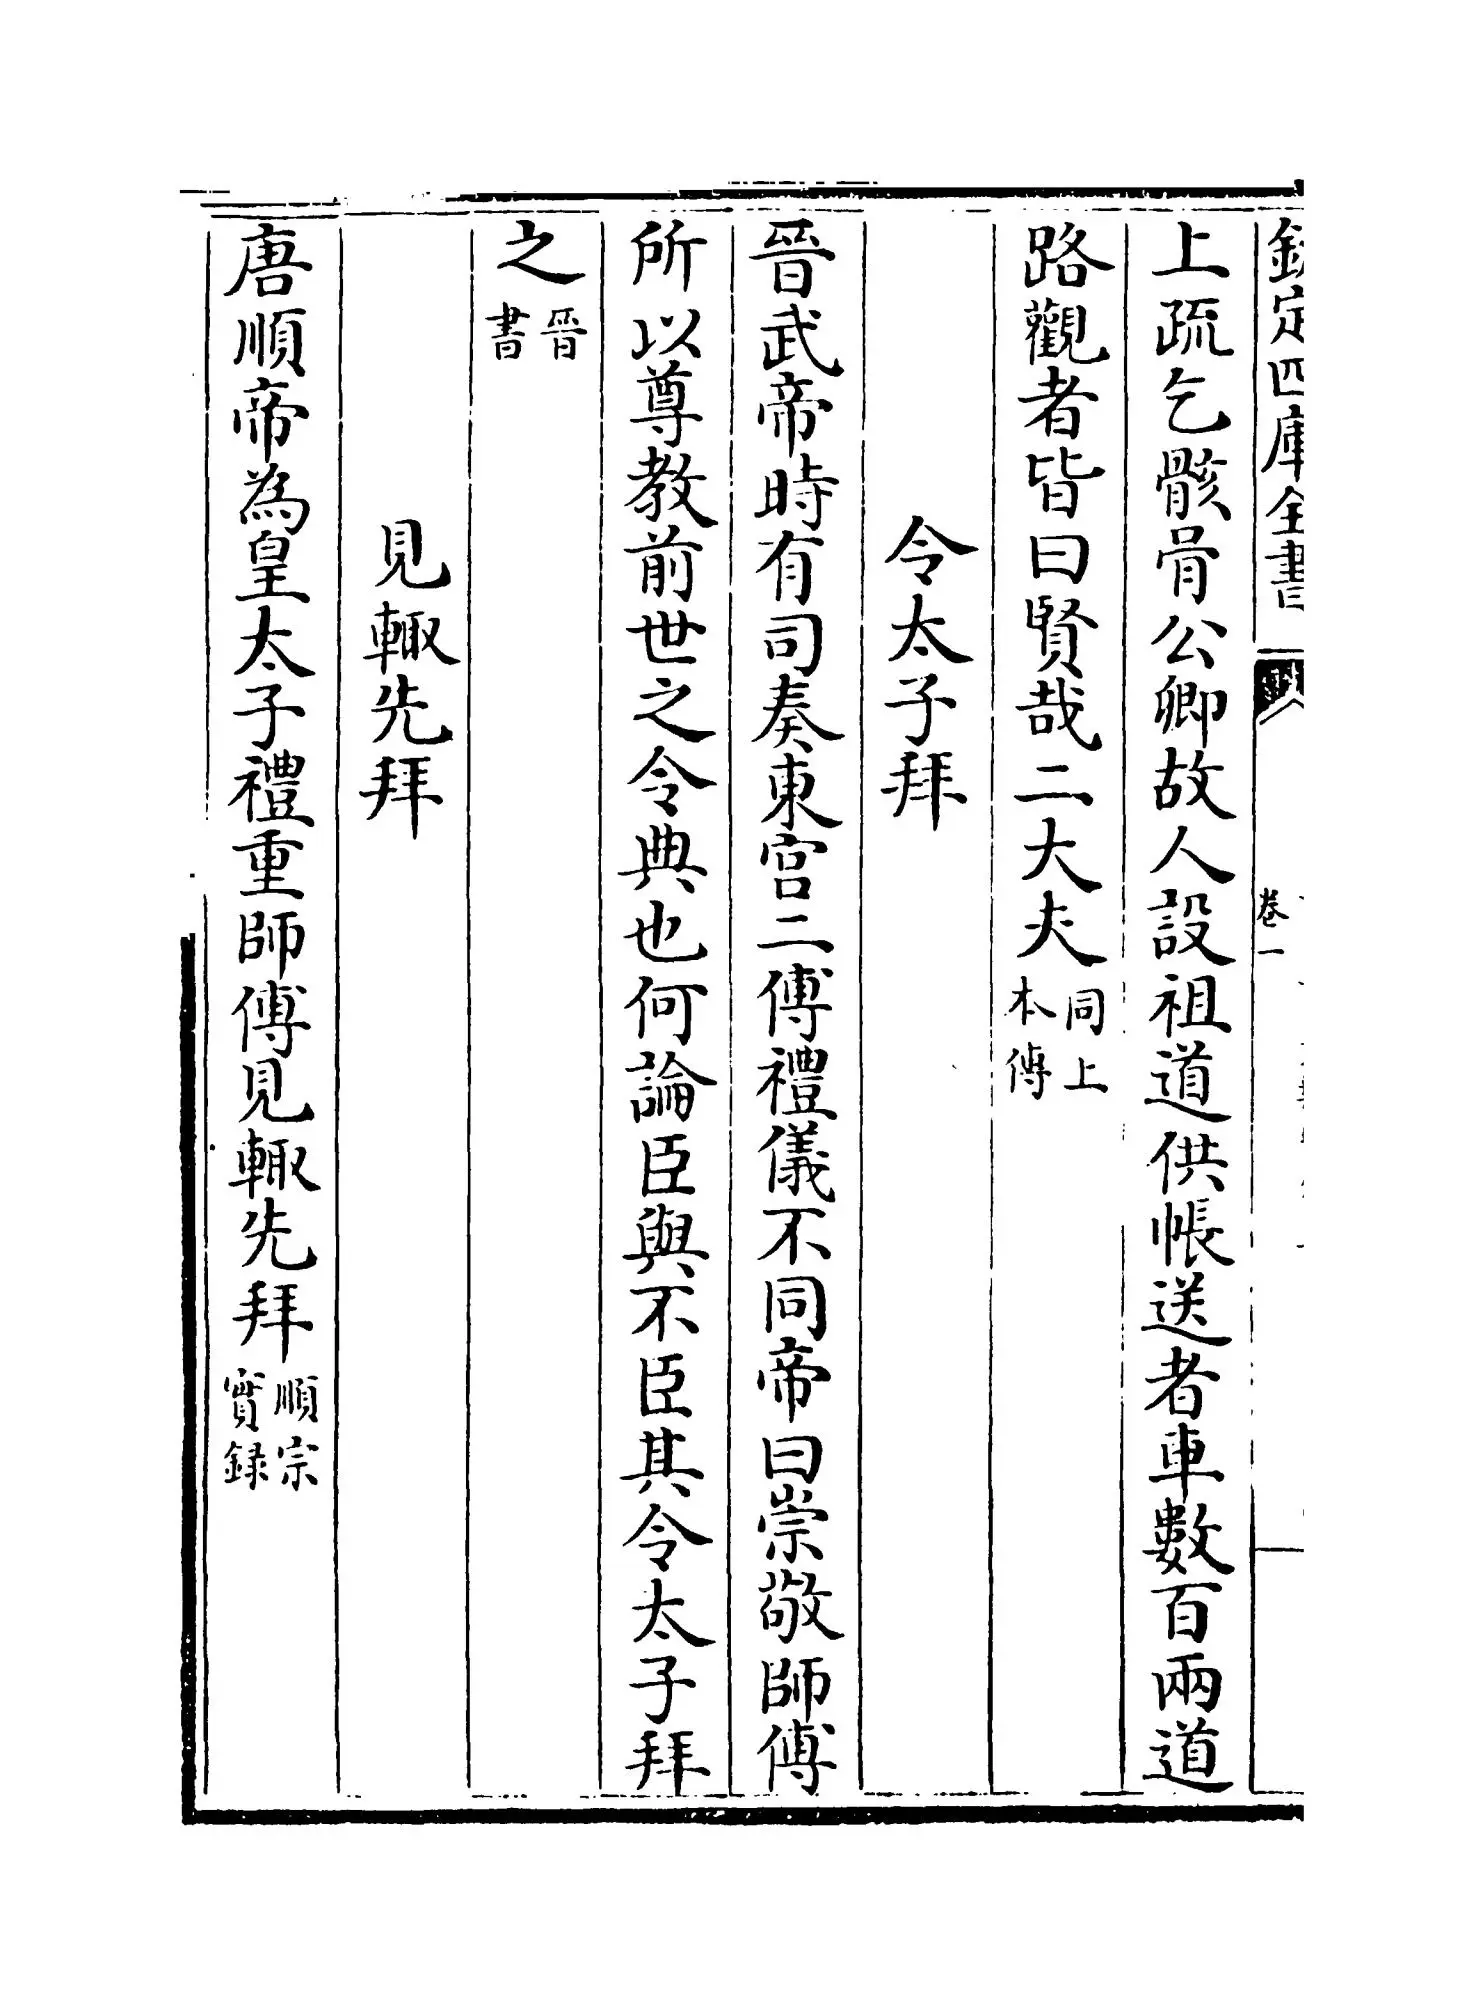 欽定四庫全書
卷一
上疏乞骸骨公卿故人設祖道供帳送者車數百兩道
路觀者皆曰賢哉二大夫同上本傳
令太子拜
晉武帝時有司奏東宮二傅禮儀不同帝曰崇敬師傅
所以尊教前世之令典也何論臣與不臣其令太子拜
之晉書
見輙先拜
唐順帝為皇太子禮重師傅見輙先拜順宗實録